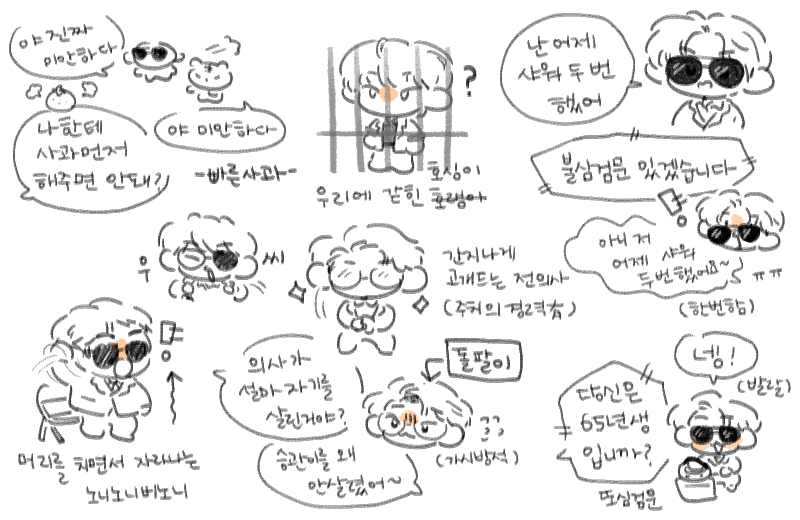 야 진짜
미안하다
나한테
사과먼저
해주면 안돼?
야 미안하다
-빠른사과-
?
우리에 갇힌 호랑이
난 어제
샤워 두번
했어
불심검문 있겠습니다
아니 저
어제 샤워
두번했어요~
ㅠㅠ
(한번함)
우
씨
간지나게
고개드는 전의사
(주취의 경력有)
머리를 치면서 자라나는
노니노니비노니
의사가
설마 자기를
살린거야?
승관이를 왜
안살렸어~
돌팔이
??
(가시방석)
당신은
65년생
입니까?
넹!
(발랄)
또심검문